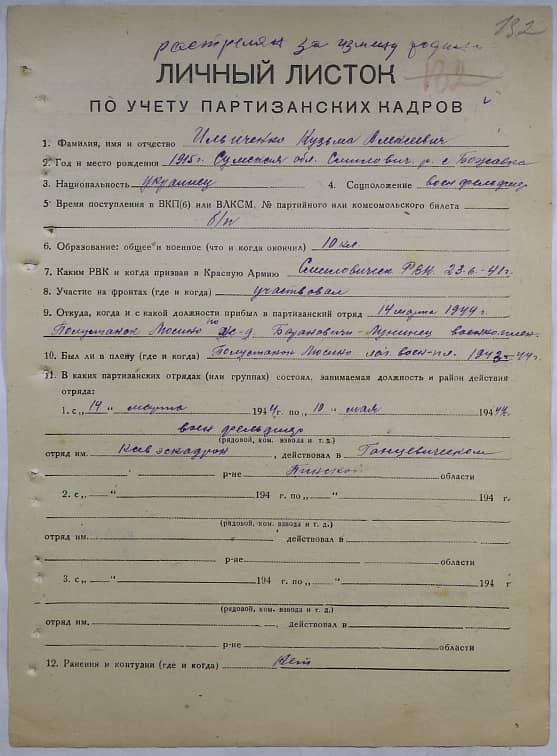 132
расстрелян за измену родине
ЛИЧНЫЙ ЛИСТОК 132
ПО УЧЕТУ ПАРТИЗАНСКИХ КАДРОВ
1. Фамилия, имя и отчество Ильиченко Кузьма
2. Год и место рождения 1915г. Сумская обл. р. с.
3. Национальность украинец 4. Соцположение военфельдш
5. Время поступления в ВКП(б) или ВЛКСМ, № партийного или комсомольского билета
б/п
6. Образование: общее и военное (что и когда окончил) 10 кл.
7. Каким РВК и когда призван в Красную Армию РВК 23-6-41г.
8. Участие на фронтах (где и когда) участвовал
9. Откуда, когда и с какой должности прибыл в партизанский отряд 14 марта 1944г.
Полустанок Люсино по ж-д Лунинец военноплен.
10. Был ли в плену (где и когда) Полустанок Люсино лаг. воен-пл. 1943-44г.
11. В каких партизанских отрядах (или группах) состоял, занимаемая должность и район действия
отряда:
1. с „14“ марта 1944г. по „10“ мая 1944г.
военфельдшер
(рядовой, ком. взвода и т. д.)
отряд им. Кавэскадрон, действовал в Ганцевическом
р-не Пинской области
2. с „ “ 194 г. по „ “ 194 г.
(рядовой, ком. взвода и т. д.)
отряд им. действовал в
р-не области
3. с „ “ 194 г. по „ “ 194 г
(рядовой, ком. взвода и т. д.)
отряд им. , действовал в
р-не области
12. Ранения и контузии (где и когда) нет